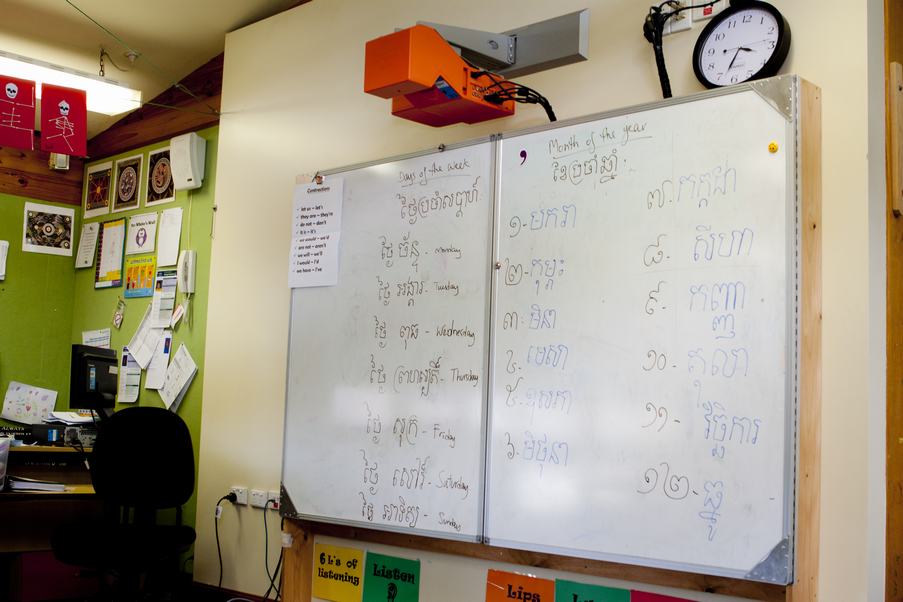 Contractions
let us - let's
they are - they're
do not - don't
it is - it's
we would - we'd
are not - aren't
we will - we'll
I would - I'd
we have - I've
Days of the week
ថ្ងៃប្រចាំសប្ដាហ៍
ថ្ងៃ ច័ន្ទ - Monday
ថ្ងៃ អង្គារ - Tuesday
ថ្ងៃ ពុធ - Wednesday
ថ្ងៃ ព្រហស្បតិ៍ - Thursday
ថ្ងៃ សុក្រ - Friday
ថ្ងៃ សៅរ៍ - Saturday
ថ្ងៃ អាទិត្យ - Sunday
Month of the year
ខែប្រចាំឆ្នាំ
១-មករា
២-កុម្ភះ
៣-មិនា
៤-មេសា
៥-ឧសភា
៦-មិថុនា
៧-កក្កដា
៨-សីហា
៩-កញ្ញា
១០-តុលា
១១-វិច្ឆិការ
១២-ធ្នូ
6 L's of
listening
Listen
Lips
ALWAYS